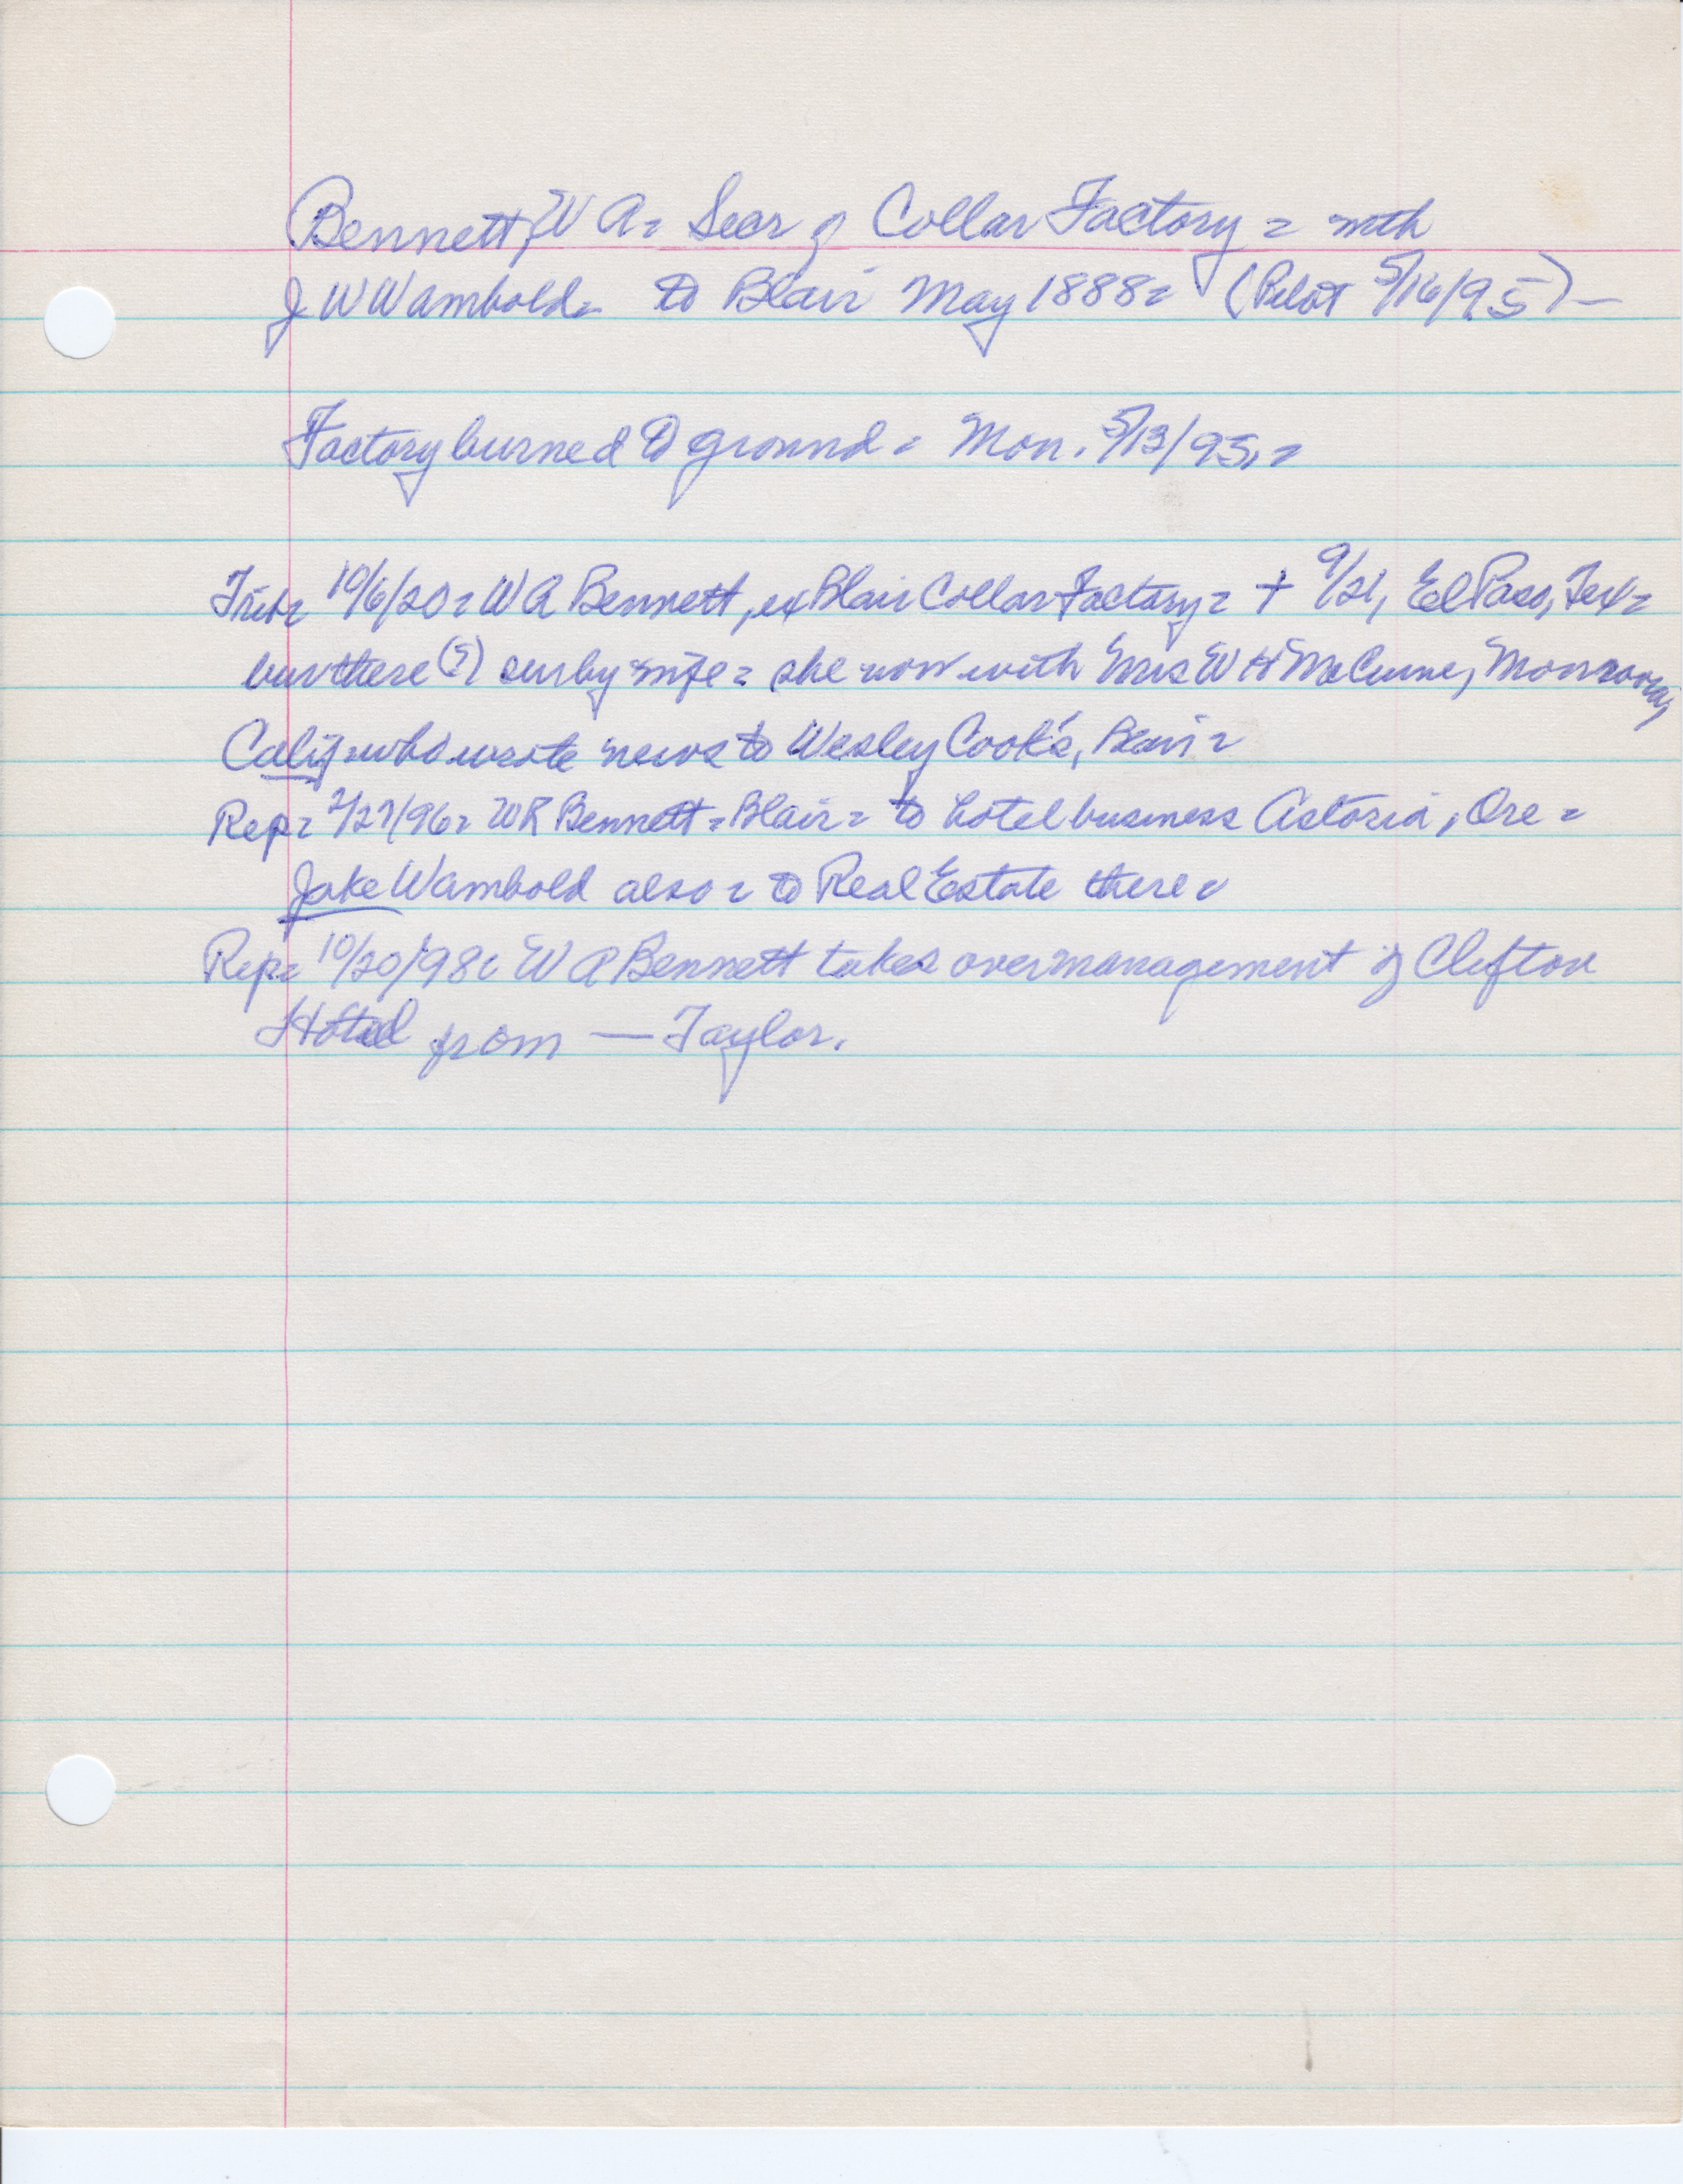 Bennett, W A = Secr of Collar Factory = with
J W Wambold = to Blair May 1888 = (Pilot 5/16/95) —
Factory burned to ground = Mon. 5/13/95, =
Trib = 10/6/20 = W A Bennett, ex Blair Collar Factory = + 9/21, El Paso, Tex =
bur there (?) sur by wife = she now with Mrs W H McCune, Monrovia,
Calif = who wrote news to Wesley Cook's, Blair =
Rep = 2/27/96 = WR Bennett = Blair = to hotel business Astoria, Ore =
Jake Wambold also = to Real Estate there =
Rep = 10/20/98 = W A Bennett takes over management of Clifton
Hotel from — Taylor.